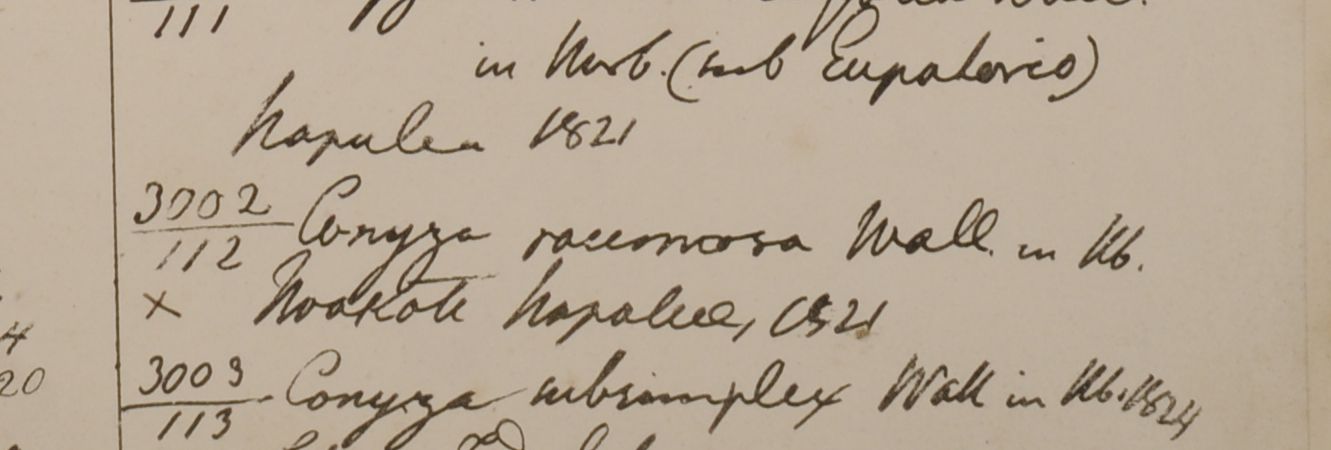 111
in Herb. (sub Eupatorio)
Napalea 1821
3002
112 Conyza racemosa Wall. in Hb.
× Noakote Napalea, 1821
3003
113 Conyza subsimplex Wall in Hb. 1824